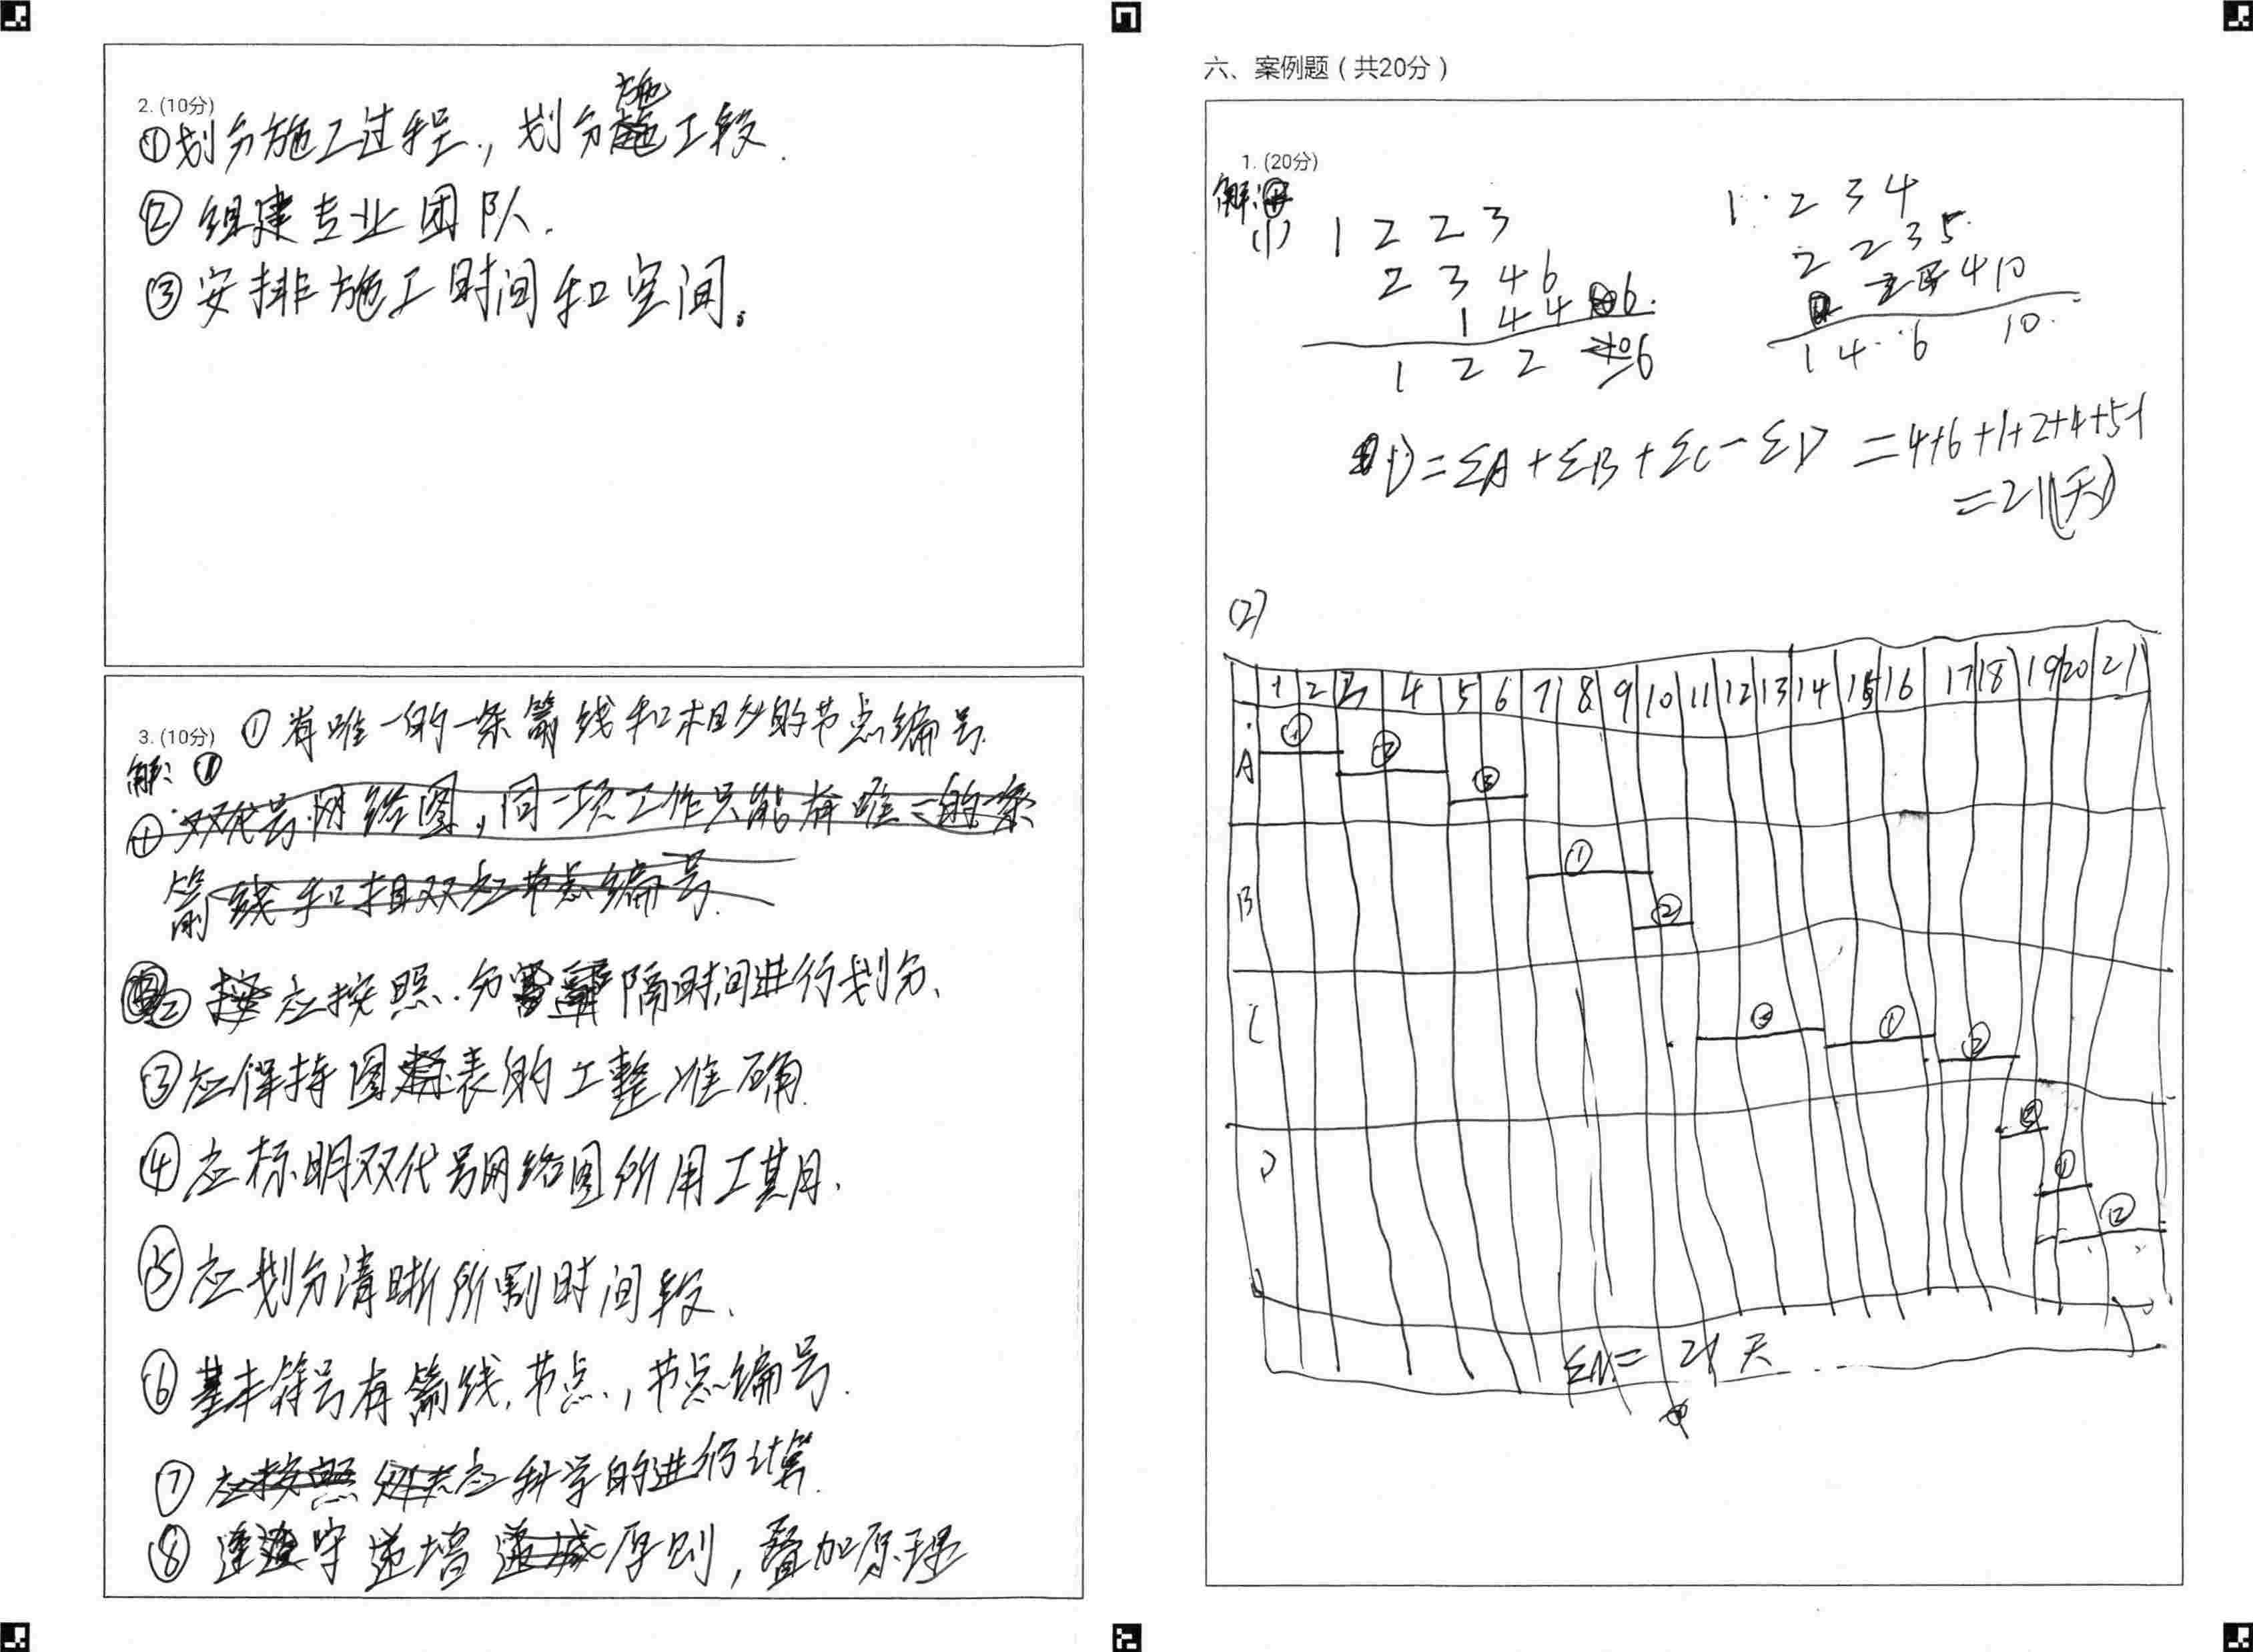 2. (10分)
①划分施工过程, 划分施工段.
②组建专业团队.
③安排施工时间和空间。
3. (10分) ①有唯一的一条箭线和相应的节点编号
解:
①双代号网络图,同一项工作只能有唯一的一条
箭线和相双应节点编号.
② 应按照.分 隔时间进行划分、
③应保持图表的工整准确.
④应标明双代号网络图所用工其月.
⑤应划分清晰所割时间段.
⑥基本符号有箭线,节点,节点编号.
⑦应按照 应科学的进行计算.
⑧ 守递增递减原则,叠加原理
六、案例题(共20分)
1. (20分)
解:
(1) 1 2 2 3
2 3 4 6
1 4 4 6.
1 2 2 6
1 2 3 4
2 2 3 5.
4 10
1 4 6 10.
D=ΣA+ΣB+ΣC-ΣD =4+6+1+2+4+5-1
=21(天)
(2)
1 2 3 4 5 6 7 8 9 10 11 12 13 14 15 16 17 18 19 20 21
A ① ② ③
B ① ②
C ③ ① ②
D ③ ① ②
ΣN= 21 天